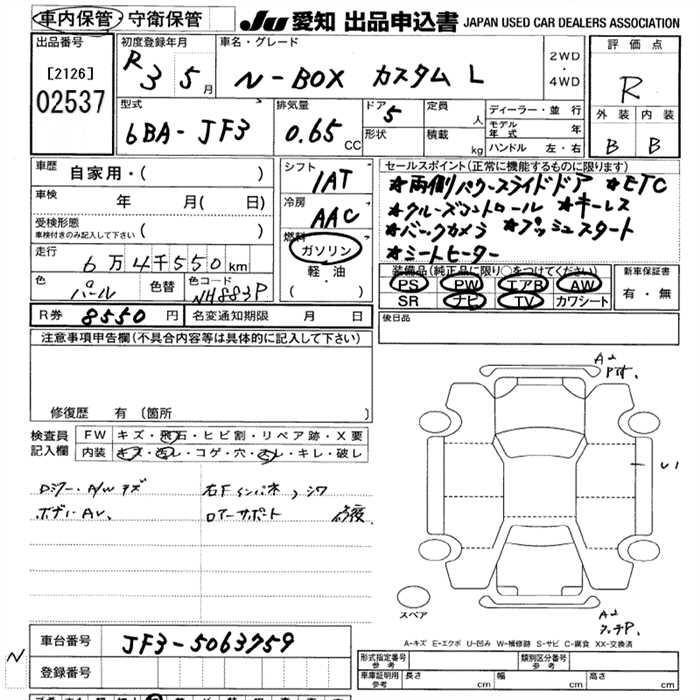 車内保管・守衛保管
Ju 愛知 出品申込書 JAPAN USED CAR DEALERS ASSOCIATION
出品番号
[2126]
02537
初度登録年月
R3 5月
車名・グレード
N-BOX カスタム L
2WD・4WD
評価点
R
型式
6BA-JF3
排気量
0.65 CC
ドア
5
形状
定員 人
積載 kg
ディーラー・並行
モデル年式 年
ハンドル 左・右
外装 内装
B B
車歴
自家用・( )
車検 年 月( 日)
受検形態
車検付きのみ記入して下さい ( )
走行
6万4千550km
色
パール
色替
色コード
NH883P
シフト
IAT
冷房
AAC
燃料
ガソリン
軽油
( )
セールスポイント(正常に機能するものに限ります)
★両側パワースライドドア ★ETC
★クルーズコントロール ★キーレス
★バックカメラ ★プッシュスタート
★シートヒーター
装備品(純正品に限り○をつけてください)
PS PW エアB AW
SR ナビ TV カワシート
新車保証書
有・無
R券 8550円 名変通知期限 月 日
後日品
注意事項申告欄(不具合内容等は具体的に記入して下さい)
修復歴 有(箇所 )
検査員記入欄
FW キズ・飛石・ヒビ割・リペア跡・X要
内装 キズ・汚レ・コゲ・穴・スレ・キレ・破レ
ボデー AU、
右Fインパネ、シワ
A2
U1
A2
スペア
A-キズ E-エクボ U-凹み W-補修跡 S-サビ C-腐食 XX-交換済
車台番号 JF3-5063759
登録番号
N
形式指定番号 参考
類別区分番号 参考
車庫証明用 参考 長さ cm 幅 cm 高さ cm